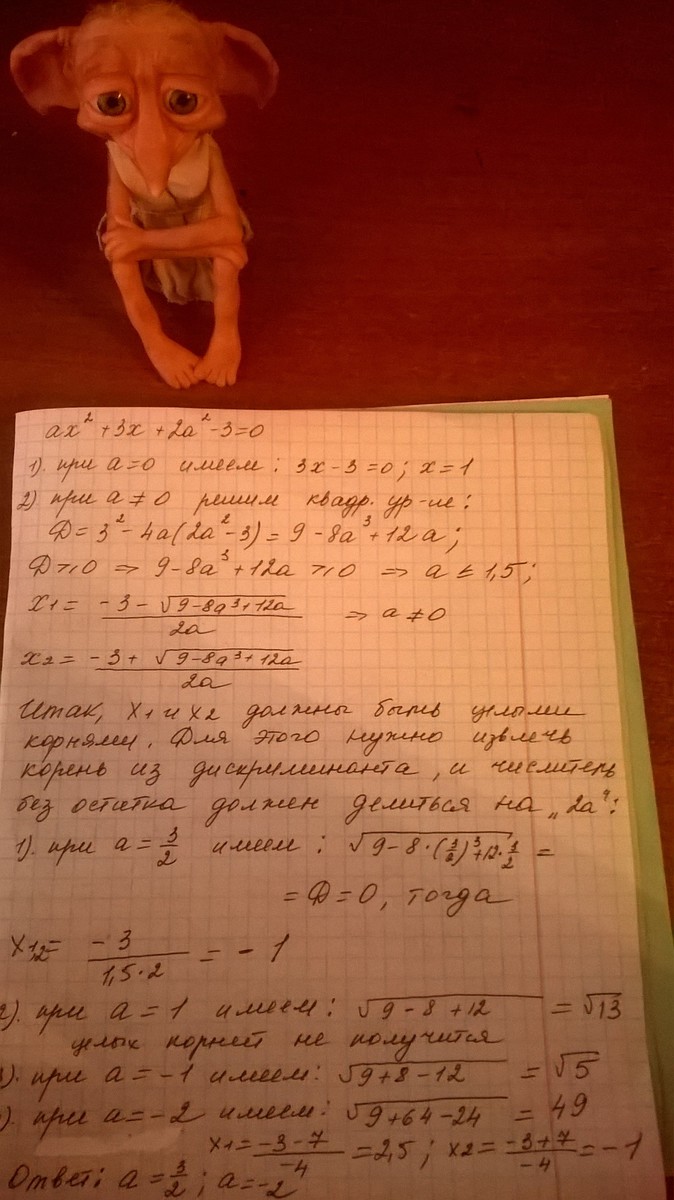 ax² + 3x + 2a² - 3 = 0
1). при a = 0 имеем : 3x - 3 = 0 ; x = 1
2) при a ≠ 0 решим квадр. ур-ие :
D = 3² - 4a(2a² - 3) = 9 - 8a³ + 12a ;
D ≥ 0 ⇒ 9 - 8a³ + 12a ≥ 0 ⇒ a ≤ 1,5 ;
x₁ = (-3 - √(9 - 8a³ + 12a)) / 2a ⇒ a ≠ 0
x₂ = (-3 + √(9 - 8a³ + 12a)) / 2a
Итак, x₁ и x₂ должны быть целыми
корнями. Для этого нужно извлечь
корень из дискриминанта, и числитель
без остатка должен делиться на „2a“ :
1). при a = 3/2 имеем : √(9 - 8·(3/2)³ + 12·3/2) =
= D = 0, тогда
x₁,₂ = -3 / (1,5·2) = -1
2). при a = 1 имеем : √(9 - 8 + 12) = √13
целых корней не получится
). при a = -1 имеем : √(9 + 8 - 12) = √5
). при a = -2 имеем : √(9 + 64 - 24) = 49
x₁ = (-3 - 7) / -4 = 2,5 ; x₂ = (-3 + 7) / -4 = -1
Ответ : a = 3/2 ; a = -2